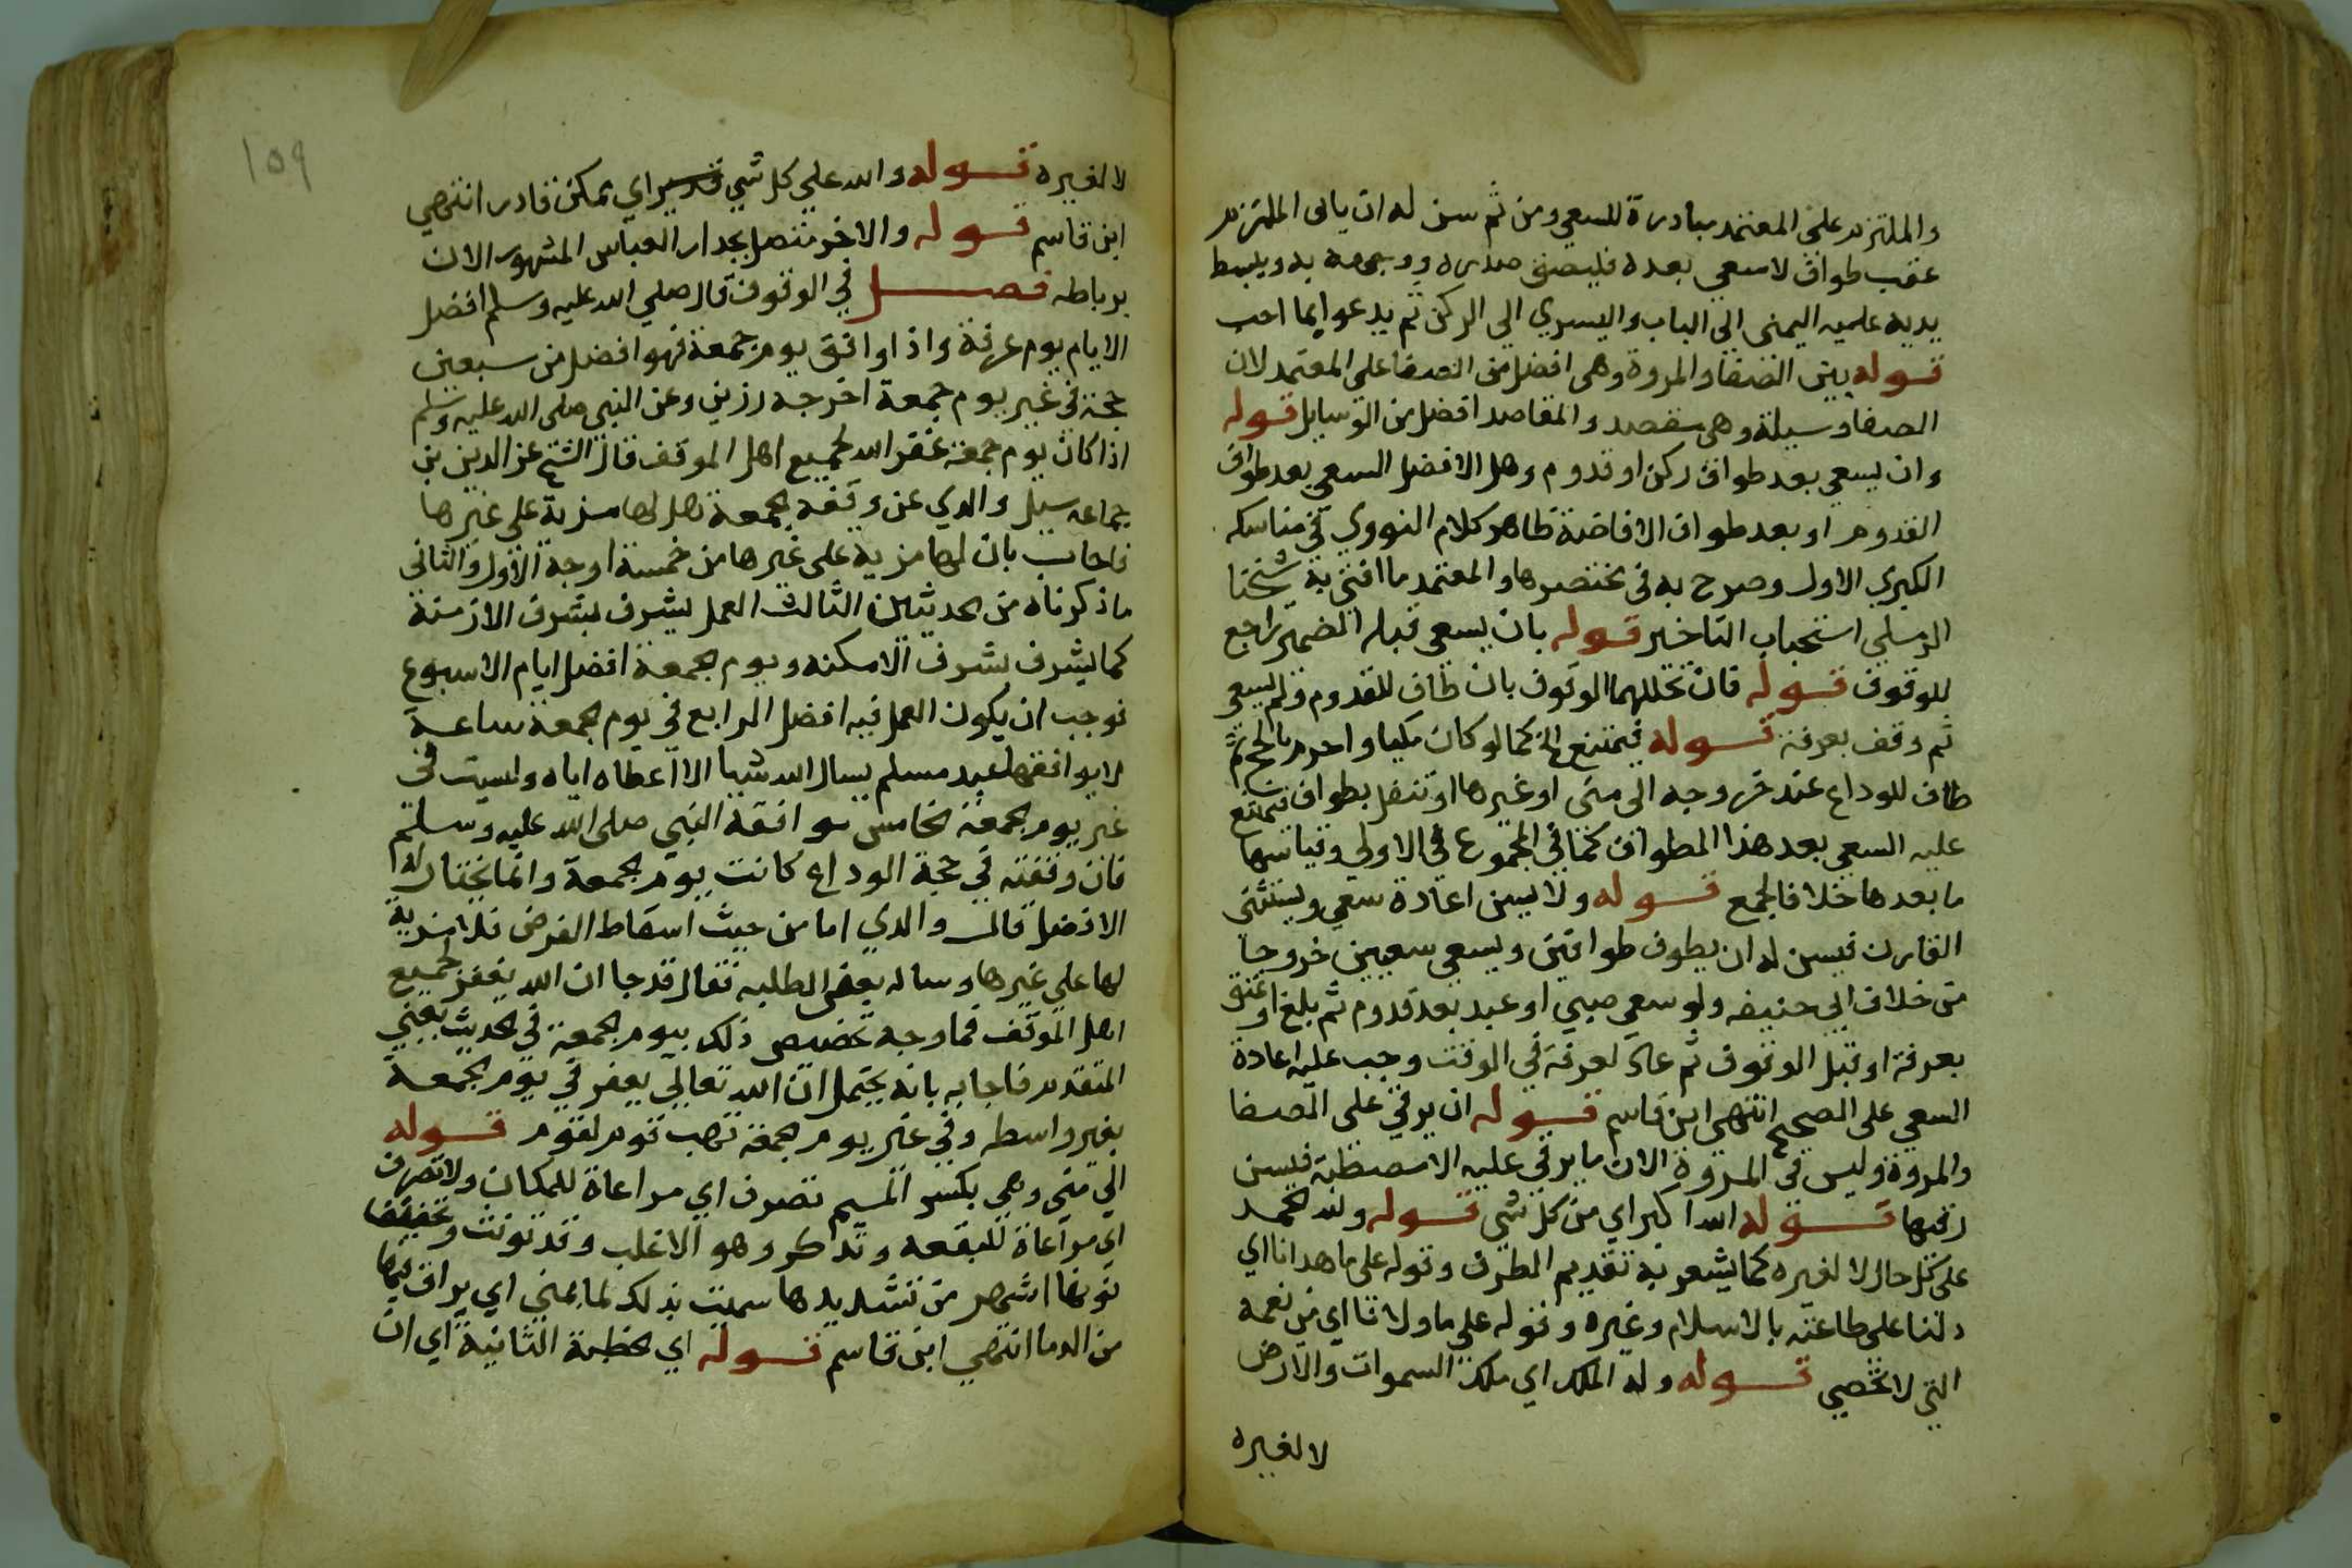 والملتزم على المعتمد مبادرة للسعي ومن ثم سن له ان ياتى الملتزم
عقب طواف لا سعي بعده فليصق صدره ووجهه به ويبسط
يديه عليه اليمنى الي الباب واليسري الي الركن ثم يدعوا بما احب
قوله بين الصفا والمروة وهى افضل من الصفا على المعتمد لان
الصفا وسيلة وهى مقصد والمقاصد افضل من الوسايل قوله
وان يسعي بعد طواف ركن او قدوم وهل الافضل السعي بعد طواف
القدوم او بعد طواف الافاضة ظاهر كلام النووي في مناسكه
الكبري الاول وصرح به فى مختصرها والمعتمد ما افتى به شيخنا
الرملي استحباب التاخير قوله بان يسعى قبله الضمير راجع
للوقوف قوله فان تخللهما الوقوف بان طاف للقدوم ولم يسعي
ثم وقف بعرفة قوله فيمتنع الخ كما لو كان مكيا واحرم بالحج ثم
طاف للوداع عند خروجه الى منى او غيرها او تنفل بطواف فيمتنع
عليه السعي بعد هذا الطواف كما في المجموع في الاولي وقياسها
ما بعدها خلافا لجمع قوله ولا يسن اعادة سعي ويستثنى
القارن فيسن له ان يطوف طوافين ويسعى سعيين خروجا
من خلاف ابي حنيفه ولو سعى صبي او عبد بعد قدوم ثم بلغ او عتق
بعرفة او قبل الوقوف ثم عاد لعرفة في الوقت وجب عليه اعادة
السعي على الصحيح انتهي ابن قاسم قوله ان يرقي على الصفا
والمروة وليس في المروة الان ما يرقي عليه الا مصطبة فيسن
رقيها قوله الله اكبر اي من كل شي قوله ولله الحمد
على كل حال لا لغيره كما يشعر به تقديم الظرف وقوله على ما هدانا اي
دلنا على طاعته بالاسلام وغيره وقوله على ما ولانا اي من نعمه
التي لا تحصي قوله وله الملك اي ملك السموات والارض
لا لغيره
١٥٩
لا لغيره قوله والله علي كل شي قدير اي ممكن قادر انتهي
ابن قاسم قوله والاخر متصل بجدار العباس المشهور الان
برباطه فصل في الوقوف قال صلي الله عليه وسلم افضل
الايام يوم عرفة واذا وافق يوم جمعة فهو افضل من سبعين
حجة في غير يوم جمعة اخرجه رزين وعن النبي صلى الله عليه وسلم
اذا كان يوم جمعة غفر الله لجميع اهل الموقف قال الشيخ عز الدين بن
جماعه سيل والدي عن وقفه الجمعة هل لها مزية على غيرها
فاجاب بان لها مزية على غيرها من خمسة اوجه الاول والثاني
ما ذكرناه من الحديثين الثالث العمل يشرف بشرف الازمنة
كما يشرف بشرف الامكنه ويوم الجمعة افضل ايام الاسبوع
فوجب ان يكون العمل فيه افضل الرابع في يوم الجمعة ساعة
لا يوافقها عبد مسلم يسال الله شيا الا اعطاه اياه وليست فى
غير يوم الجمعة الخامس موافقة النبي صلى الله عليه وسلم
فان وقفته في حجة الوداع كانت يوم الجمعة وانما يختار له
الافضل قال والدي اما من حيث اسقاط الفرض فلا مزية
لها علي غيرها وساله بعض الطلبه فقال قد جا ان الله يغفر لجميع
اهل الموقف فما وجه تخصيص ذلك بيوم الجمعة في الحديث يعني
المتقدم فاجابه بانه يحتمل ان الله تعالي يغفر في يوم الجمعة
بغير واسطه وفي غير يوم الجمعة يهب قوم لقوم قوله
الي منى وهي بكسر الميم تصرف اي مراعاة للمكان ولا تصرف
اي مراعاة للبقعه وتذكر وهو الاغلب وقد تونث وتخفيف
نونها اشهر من تشديدها سميت بذلك لما يمني اي يراق فيها
من الدما انتهي ابن قاسم قوله اي خطبة الثانية اي ان